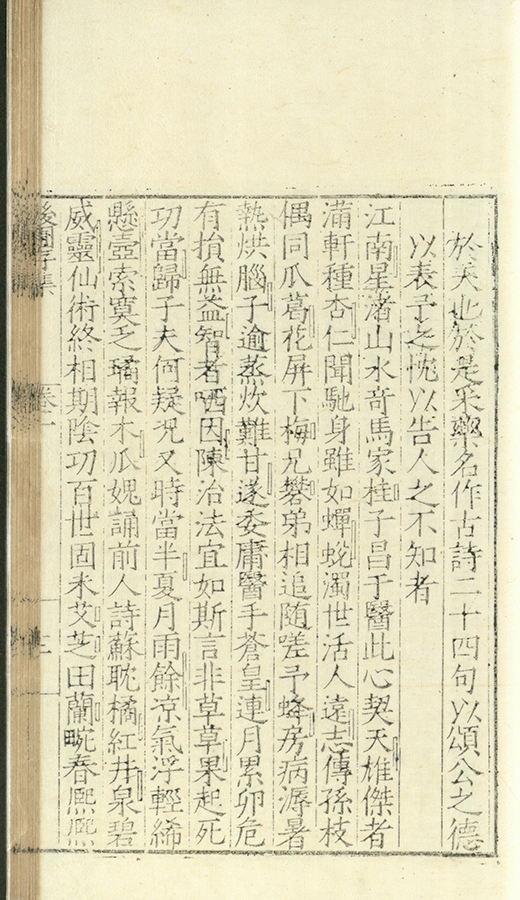 於天也於是采藥名作古詩二十四句以頌公之德
以表予之愧以告人之不知者
江南星渚山水奇馬家桂子昌于醫此心契天雄傑者
滿軒種杏仁聞馳身雖如蟬蛻濁世活人遠志傳孫枝
偶同瓜葛花屏下梅兄礬弟相追随嗟予蜂房病溽暑
熱烘腦子逾蒸炊難甘遂委庸醫手蒼皇連月累卵危
有損無益智者哂因陳治法宜如斯言非草草果起死
功當歸子夫何疑况又時當半夏月雨餘凉氣浮輕絺
懸壺索寞乏璚報木瓜媿誦前人詩蘇耽橘紅井泉碧
威靈仙術終相期陰功百世固未艾芝田蘭畹春熈熈
後圃存集
卷一